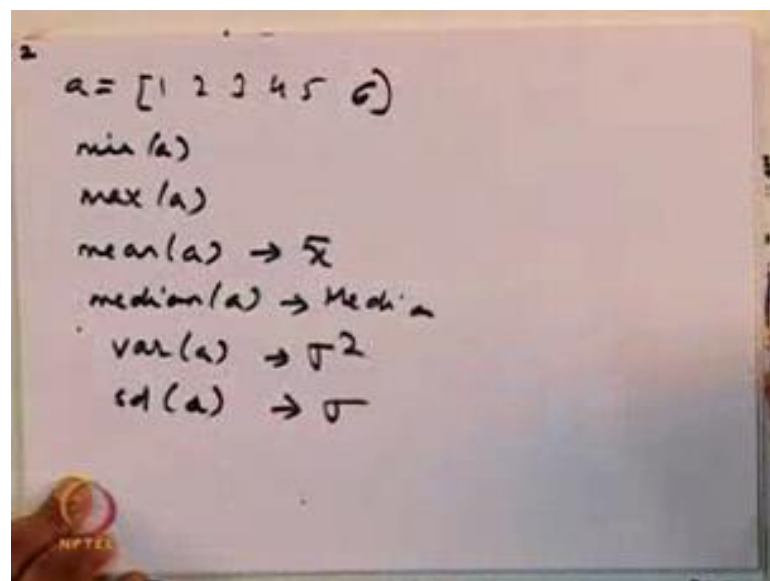 2
a = [1 2 3 4 5 6]
min (a)
max (a)
mean (a) → x̄
median (a) → Media
var (a) → σ2
sd (a) → σ
NPTEL